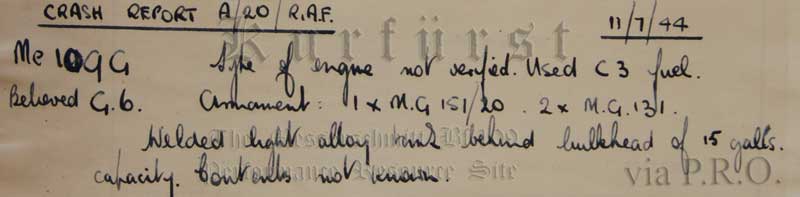 CRASH REPORT A/20/R.A.F. 11/7/44
Kurfürst
Me 109G Type of engine not verified. Used C3 fuel.
Believed G.6. Armament: 1 x M.G 151/20. 2 x M.G. 131.
Welded light alloy tank behind bulkhead of 15 galls.
capacity. Contents not known.
Performance Resource Site
via P.R.O.